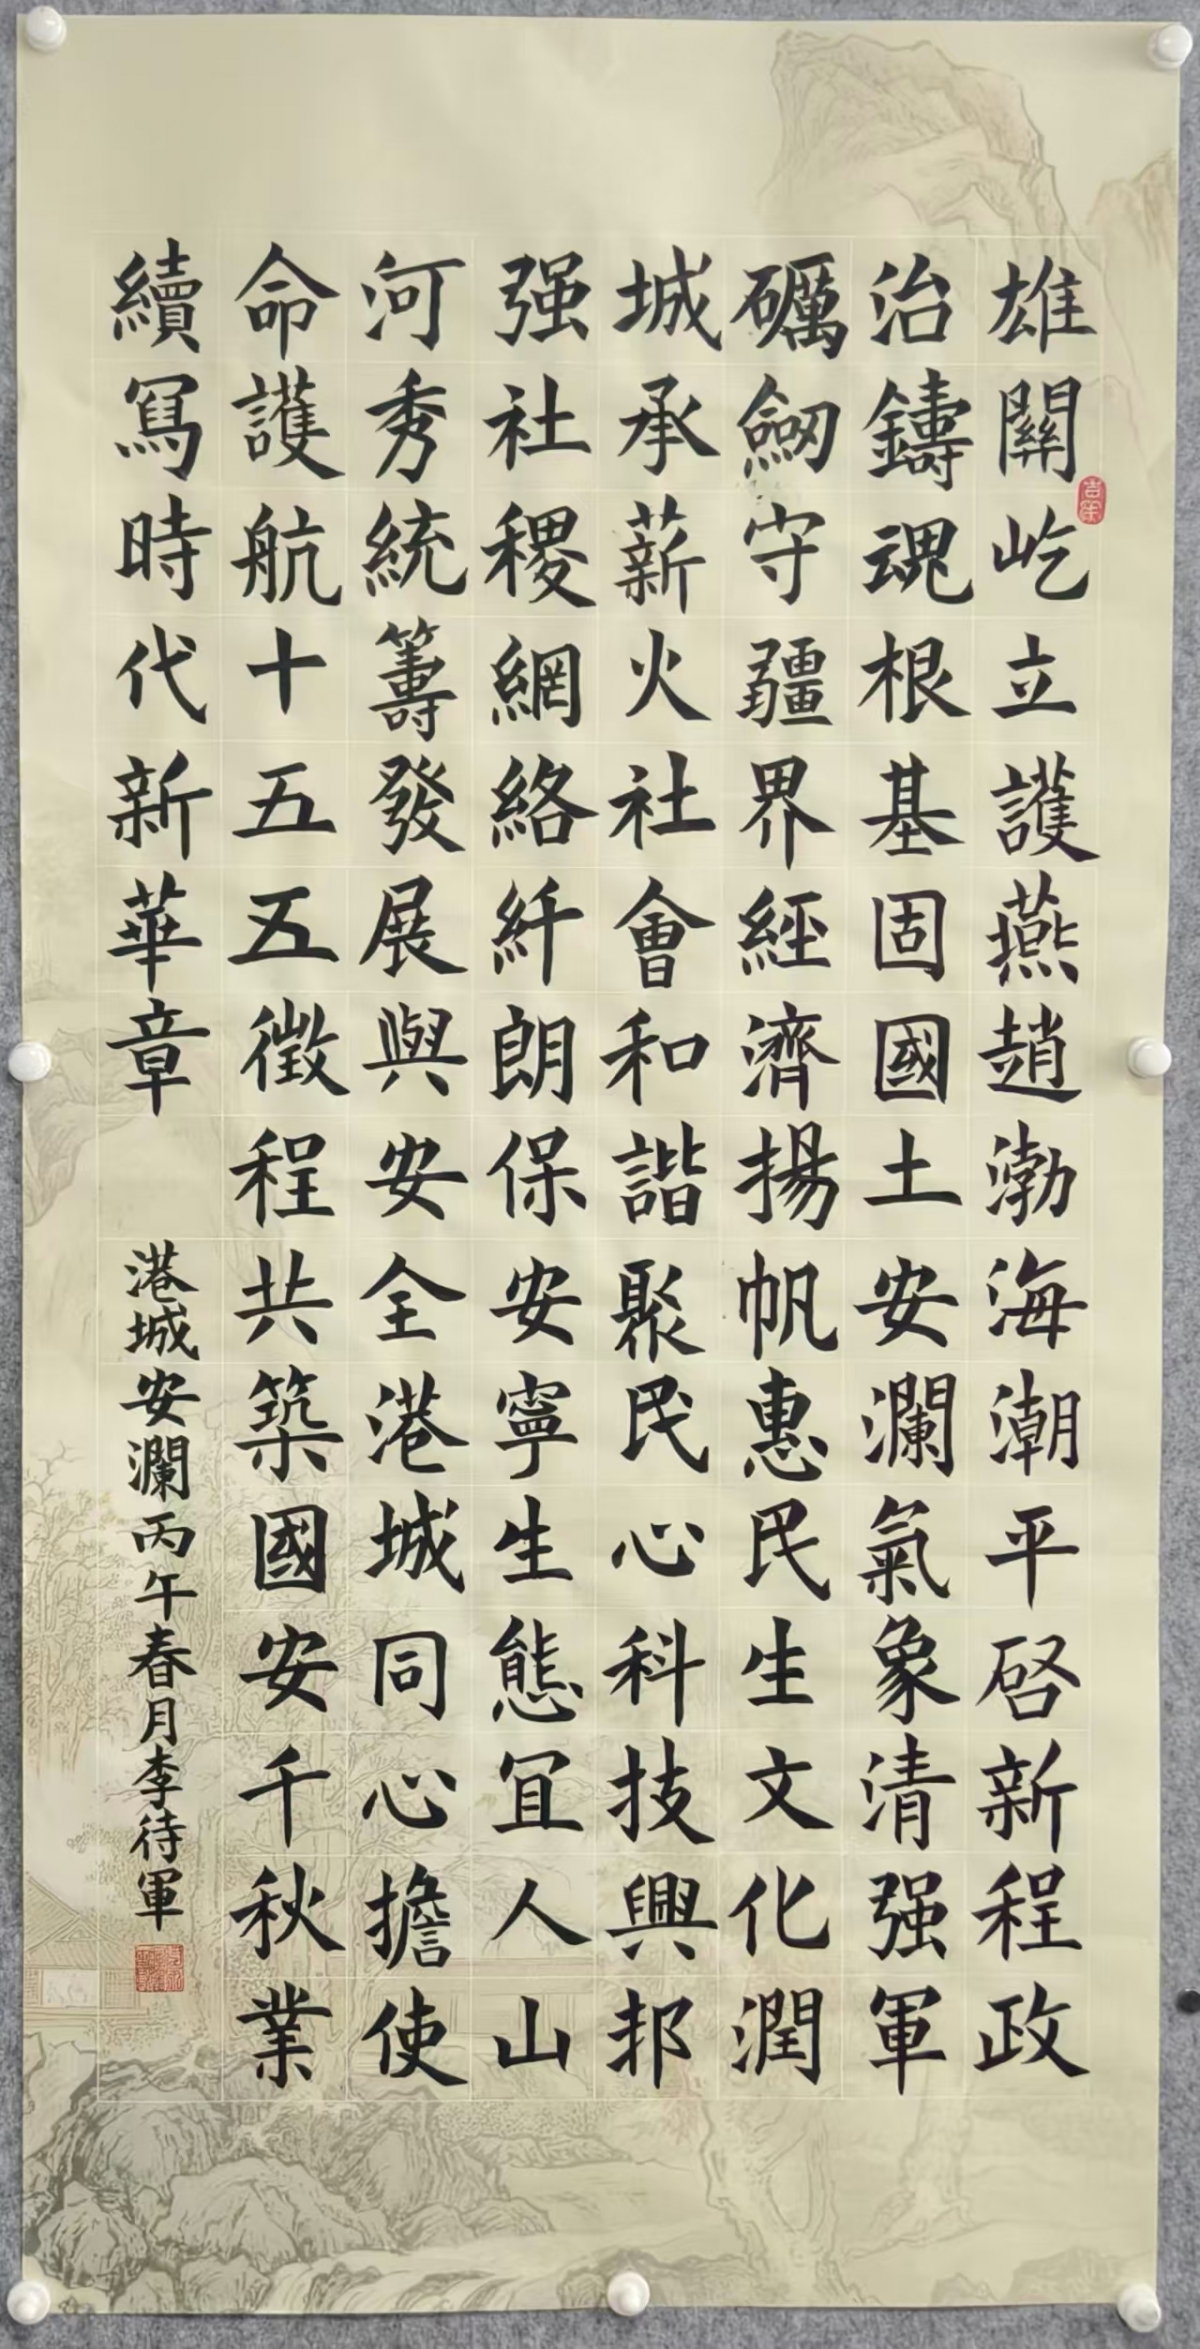 雄關屹立護燕趙渤海潮平啓新程政
治鑄魂根基固國土安瀾氣象清强軍
礪劒守疆界經濟揚帆惠民生文化潤
城承薪火社會和諧聚民心科技興邦
强社稷網絡纤朗保安寧生態宜人山
河秀統籌發展與安全港城同心擔使
命護航十五五徵程共築國安千秋業
續寫時代新華章
港城安瀾丙午春月李待軍